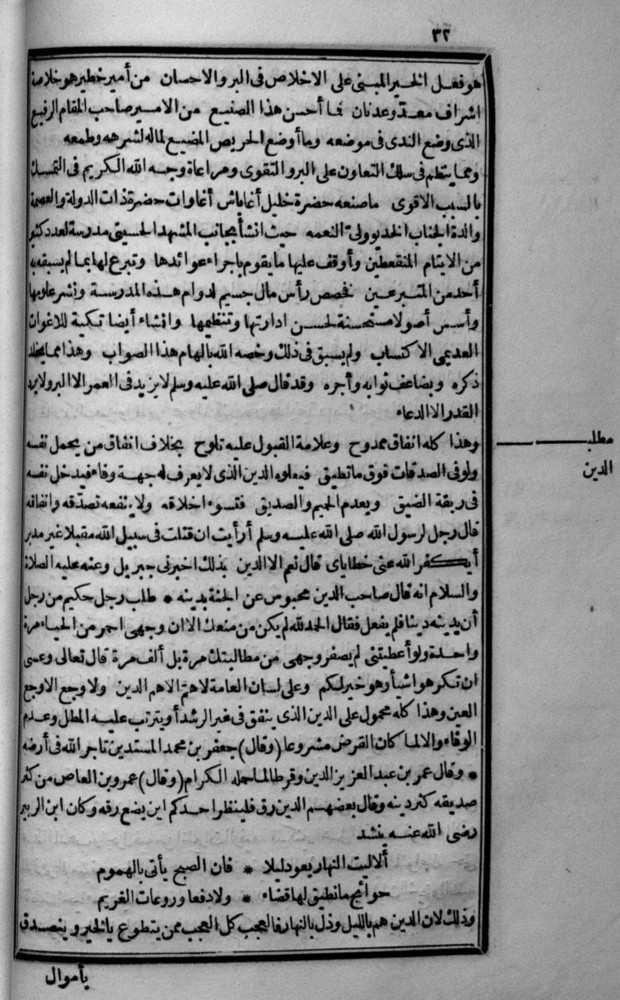 ٣٢
هو فعل الخير المبنى على الاخلاص فى البر والاحسان من أمير خطير هو خلاصة
اشراف معد وعدنان فما أحسن هذا الصنيع من الامير صاحب المقام الرفيع
الذى وضع الندى فى موضعه وما أوضع الحريص المضيع لماله لشرهه وطمعه
ومما ينتظم فى سلك التعاون على البر والتقوى ومراعاة وجه الله الكريم فى التمسك
بالسبب الاقوى ماصنعه حضرة خليل أغا باش أغاوات حضرة ذات الدولة والعصمة
والدة الجناب الخديو ولى النعمه حيث انشأ بجانب المشهد الحسينى مدرسة لعدد كثير
من الايتام المنقعطين وأوقف عليها مايقوم باجراء عوائدها وتبرع لها بما لم يسبقه به
أحد من المتبرعين فخصص رأس مال جسيم لدوام هذه المدرسة ونشر علومها
وأسس أصولا مستحسنة لحسن ادارتها وتنظيمها وانشاء أيضا تكية للاغوات
العديمى الاكتساب ولم يسبق فى ذلك وخصه الله بالهام هذا الصواب وهذا مما يخلد
ذكره ويضاعف ثوابه وأجره وقد قال صلى الله عليه وسلم لا يزيد فى العمر الا البر ولا يرد
القدر الا الدعاء
وهذا كله انفاق ممدوح وعلامة القبول عليه تلوح بخلاف انفاق من يحمل نفسه
ولو فى الصدقات فوق ماتطيق فيعلوه الدين الذى لا يعرف له جهة وفاء فيدخل نفسه
فى ربقة الضيق ويعدم الحميم والصديق فتسوء اخلاقه ولا ينفعه تصدقه وانفاقه
قال رجل لرسول الله صلى الله عليه وسلم أرأيت ان قتلت فى سبيل الله مقبلا غير مدبر
أيكفر الله عنى خطاياى قال نعم الا الدين بذلك اخبرنى جبريل وعنه عليه الصلاة
والسلام انه قال صاحب الدين محبوس عن الجنة بدينه * طلب رجل حكيم من رجل
أن يدينه دينا فلم يفعل فقال الحمد لله لم يكن من منعك الا ان وجهى احمر من الحياء مرة
واحدة ولو أعطيتنى لم يصفر وجهى من مطالبتك مرة بل ألف مرة قال تعالى وعسى
ان تكرهوا شيأ وهو خير لكم وعلى لسان العامة لا هم الا هم الدين ولا وجع الا وجع
العين وهذا كله محمول على الدين الذى ينفق فى غير الرشد أو يترتب عليه المطل وعدم
الوفاء والا لما كان القرض مشروعا (وقال) جعفر بن محمد المستدين تاجر الله فى أرضه
* وقال عمر بن عبد العزيز الدين وقر طالما حمله الكرام (وقال) عمرو بن العاص من كثر
صديقه كثر دينه وقال بعضهم الدين رق فلينظر احدكم اين يضع رقه وكان ابن الزبير
رضى الله عنه ينشد
ألا ليت النهار يعود ليلا * فان الصبح يأتى بالهموم
حوائج مانطيق لها قضاء * ولا دفعا وروعات الغريم
وذلك لان الدين هم بالليل وذل بالنهار فالعجب كل العجب ممن يتطوع بالخير ويتصدق
بأموال
مطلب
الدين